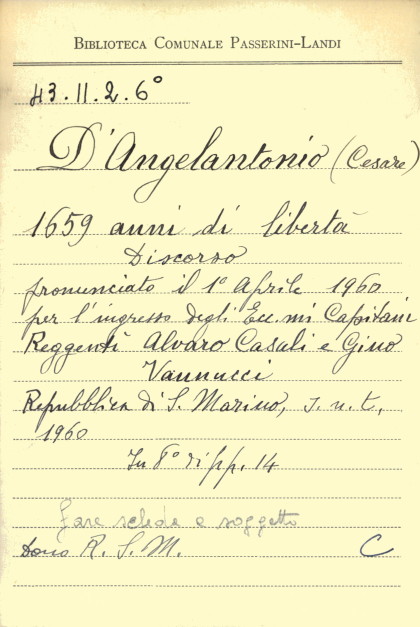 BIBLIOTECA COMUNALE PASSERINI-LANDI
43.II.2.6°
D'Angelantonio (Cesare)
1659 anni di libertà
Discorso
pronunciato il 1° Aprile 1960
per l'ingresso degli Ecc.mi Capitani
Reggenti Alvaro Casali e Gino
Vannucci
Repubblica di S. Marino, s. n. t,
1960
In 8° di pp. 14
fare schede e soggetto
Dono R. S. M. C